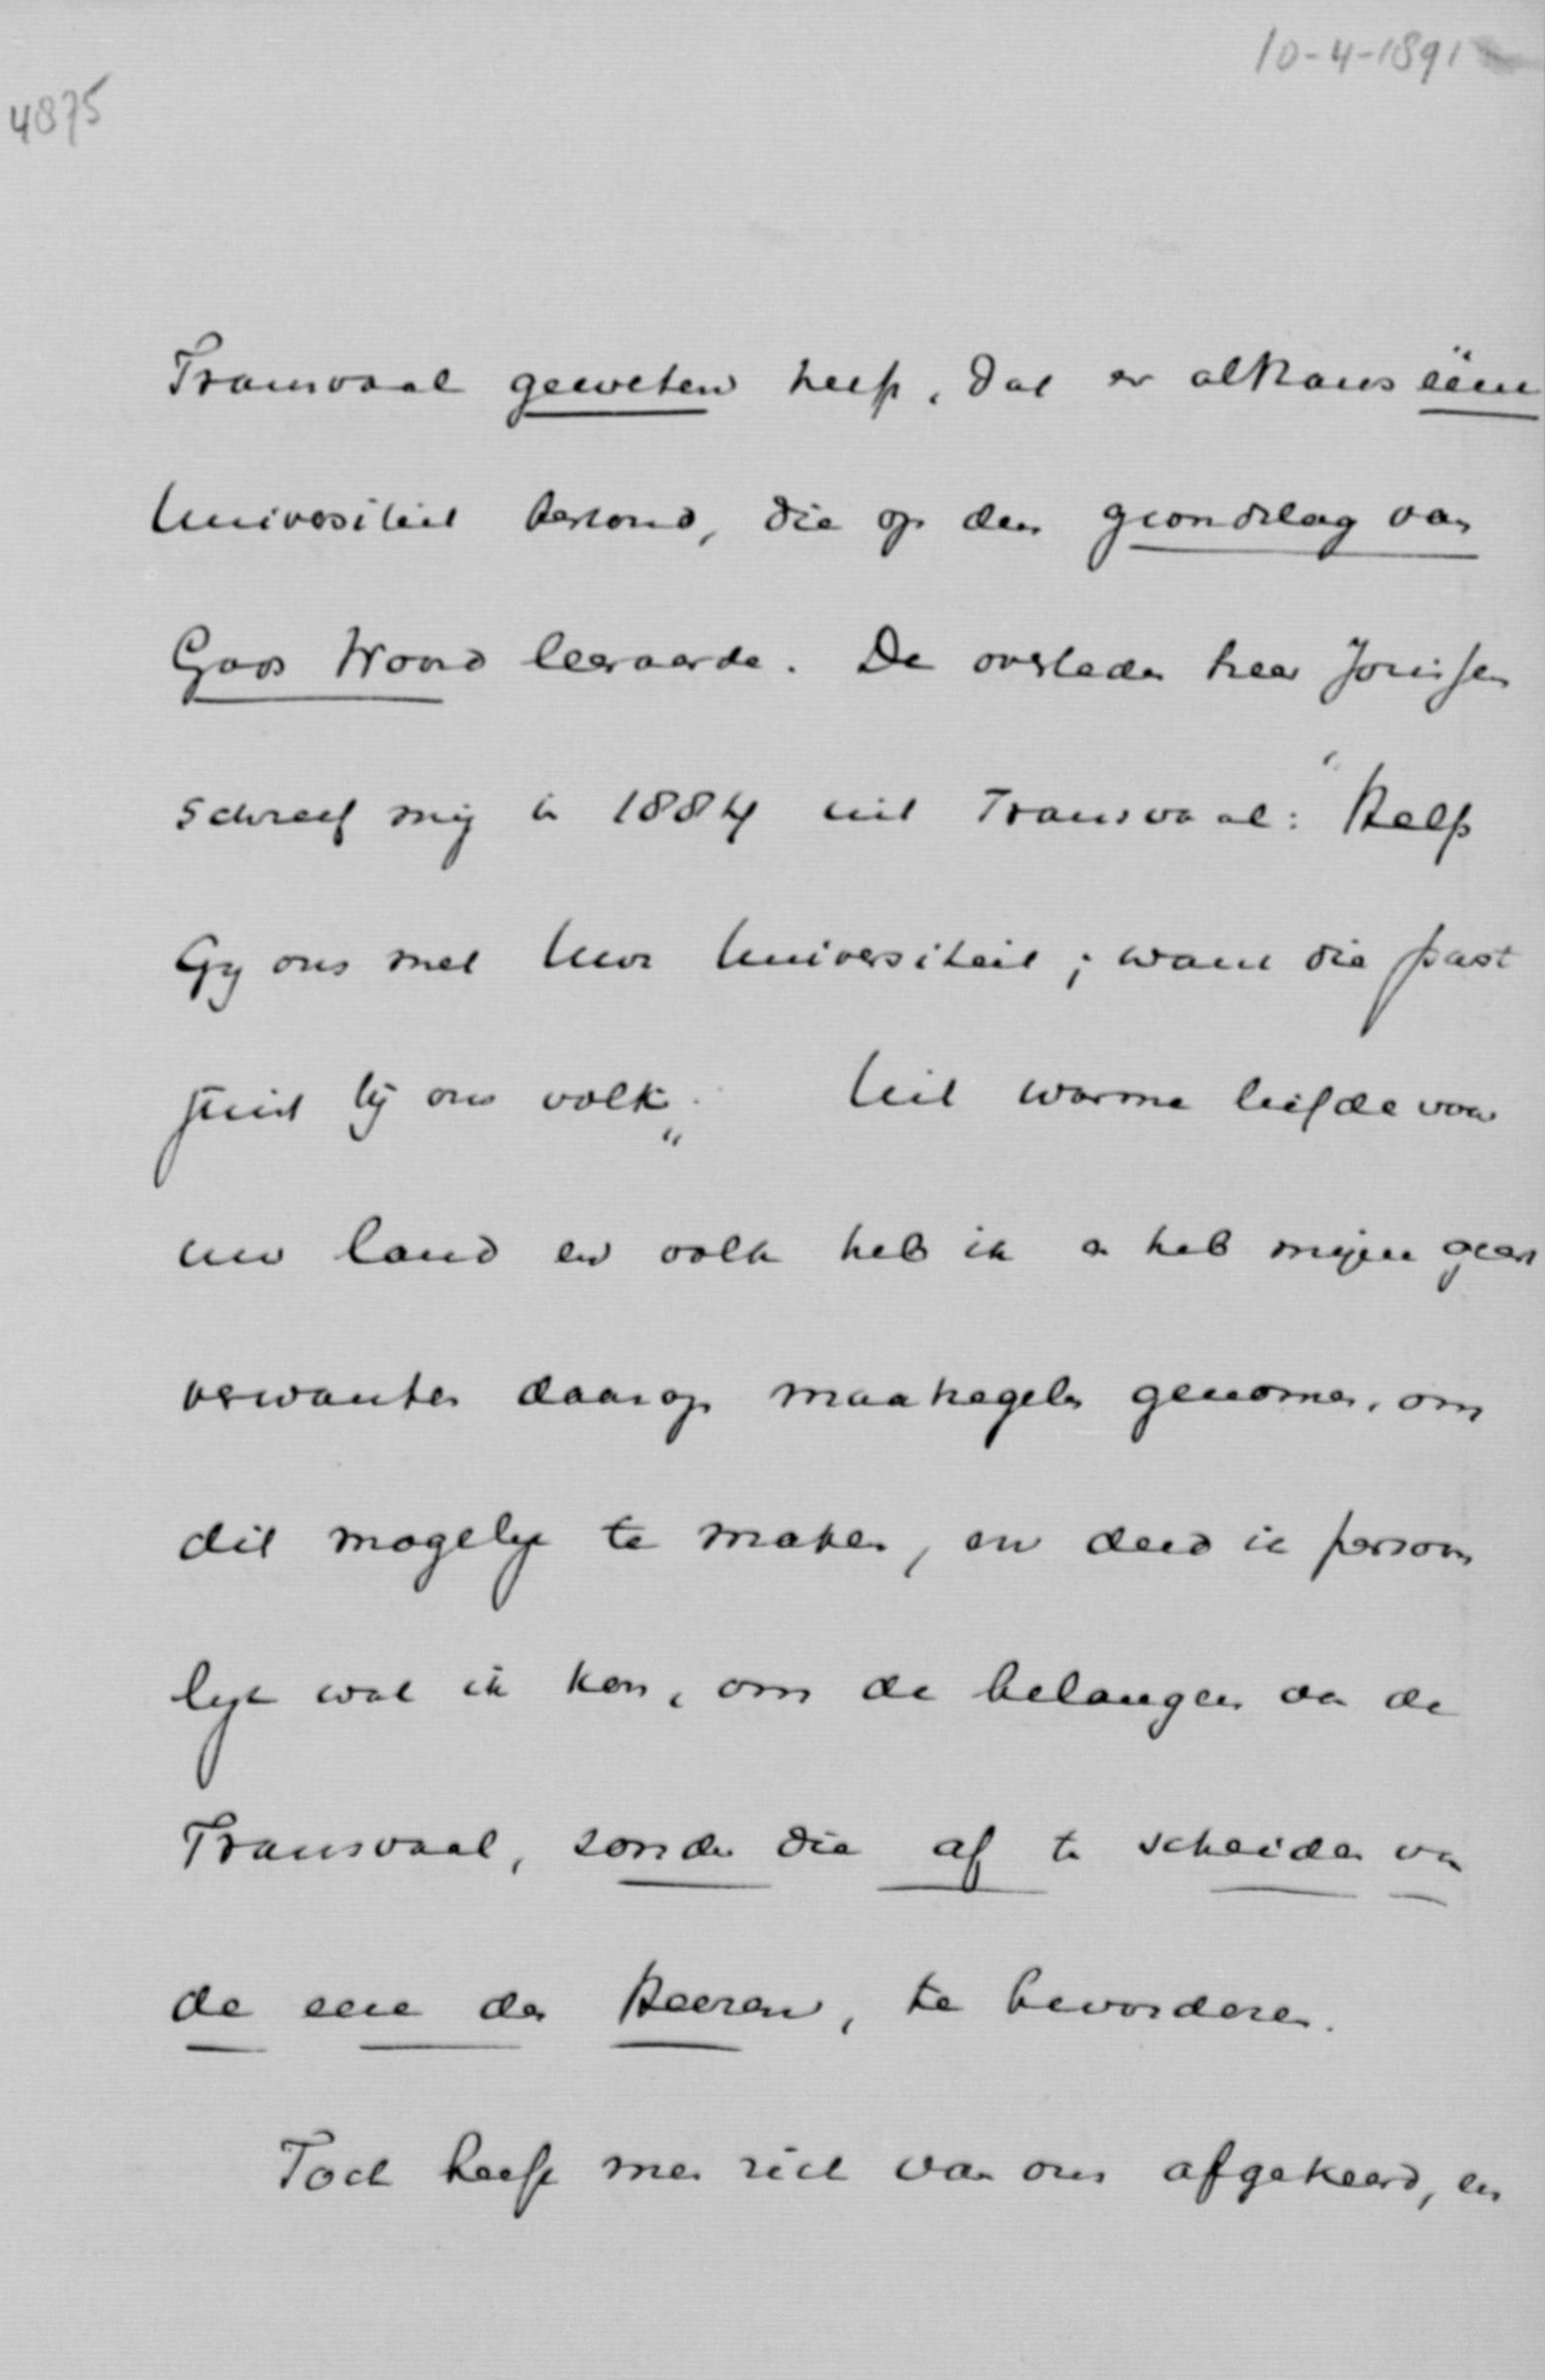 10-4-1891
4875
Transvaal geweten heeft, dat er althans ééne
Universiteit bestond, die op den grondslag van
Gods Woord leeraarde. De overleden heer Jorissen
schreef mij in 1884 uit Transvaal: "Help
Gij ons met Uwe Universiteit; want die past
juist bij ons volk". Uit warme liefde voor
uw land en volk heb ik en heb mijne geest
verwanten daarop maatregelen genomen, om
dit mogelijk te maken, en deed ik persoon
lijk wat ik kon, om de belangen van de
Transvaal, zonder die af te scheiden van
de eere des Heeren, te bevorderen.
Toch heeft men zich van ons afgekeerd, en